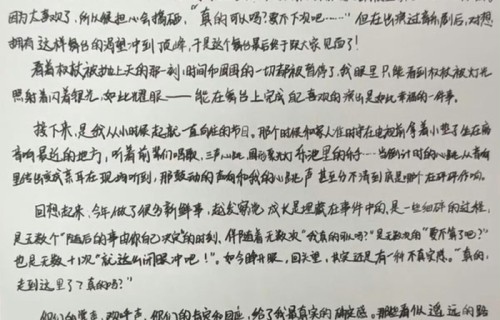 因为太喜欢了，所以很担心会搞砸，“真的可以吗？要不下次吧……”但在出演过音乐剧后，对想
拥有这样舞台的渴望冲到顶峰，于是这个舞台最后终于跟大家见面了！
看着权杖被抛上天的那一刻，时间和周围的一切都被暂停了，我眼里只能看到权杖被灯光
照射着闪着银光，如此耀眼——能在舞台上完成自己喜欢的演出是如此幸福的一件事。
接下来，是我从小时候起就一直向往的节目。那个时候和家人准时守在电视前拿着小凳子坐在离
音响最近的地方，听着前辈们唱歌，三声心跳，圆形聚光灯
当倒计时的心跳从音响
里传出变成亲耳在现场听到，那鼓动的声响和我的心跳声甚至分不清到底是哪个在砰砰作响。
回想起来，今年做了很多新鲜事，越发察觉成长是埋藏在事件中的，是一些细碎的过程，
是无数个“随后的事由你自己决定”的时刻，伴随着无数次“我真的可以吗？”是无数次的“要不算了吧？”
也是无数十几次“就这么闭眼冲吧！”。如今睁开眼，回头望，肯定还是有一种不真实感。“真的，
走到这里了？真的吗？”
你们的掌声，欢呼声，你们的肯定和回应，给了我最真实的确定感。那些看似遥远的路